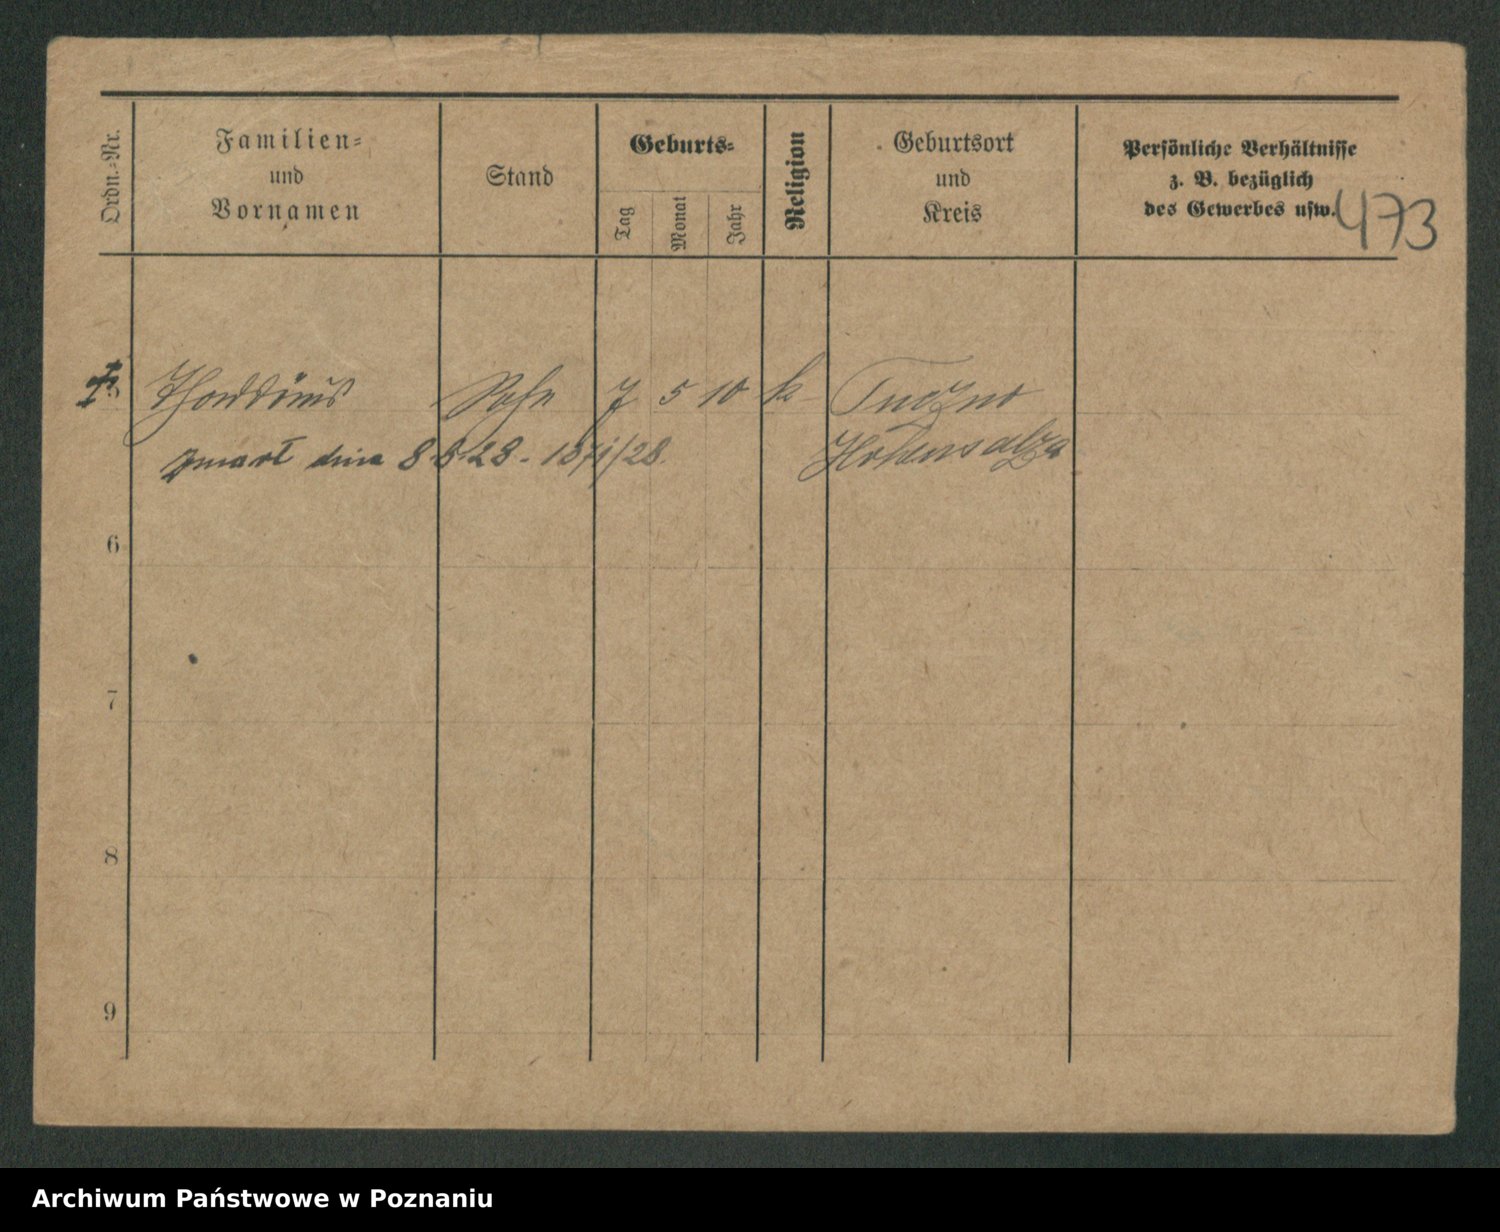 Ordn.=Nr.
Familien=
und
Vornamen
Stand
Geburts=
Tag
Monat
Jahr
Religion
Geburtsort
und
Kreis
Persönliche Verhältnisse
z. B. bezüglich
des Gewerbes usw.
473
5 Thaddäus Sohn 7 5 10 k Tuczno
Hohensalza
zmarł dnia 8.8.28 - 1871/28.
6
7
8
9
Archiwum Państwowe w Poznaniu